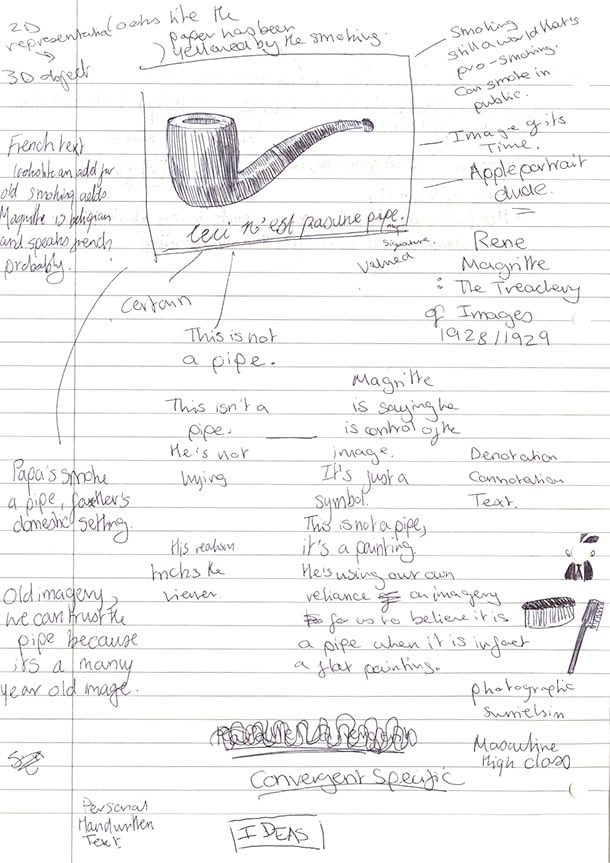 2D
representation
3D object
looks like the
paper has been
yellowed by the smoking.
Smoking
still a world that's
pro-smoking.
Can smoke in
public.
Image of its
Time.
Apple portrait
dude.
French text
looks like an add for
old smoking adds
Magritte is belgian
and speaks french
probably.
Ceci n'est pas une pipe.
signature.
valued
Rene
Magritte
: The Treachery
of Images
1928/1929
Certain
This is not
a pipe.
This isn't a
pipe.
He's not
lying
His realism
tricks the
viewer.
Magritte
is saying he
is control of the
image.
It's just a
symbol.
This is not a pipe,
it's a painting
He's using our own
reliance on imagery
for us to believe it is
a pipe when it is infact
a flat painting.
Denotation
Connotation
Text.
Papa's smoke
a pipe,
domestic setting.
Old imagery,
we can trust the
pipe because
its a many
year old image.
photographic
Masculine
High class
Convergent Specific
Personal
Handwritten
Text
IDEAS